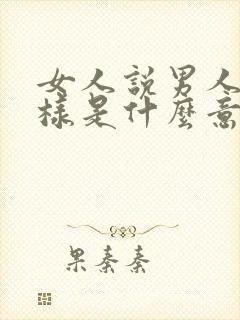 女人說男人
樣是什麼意
果秦秦